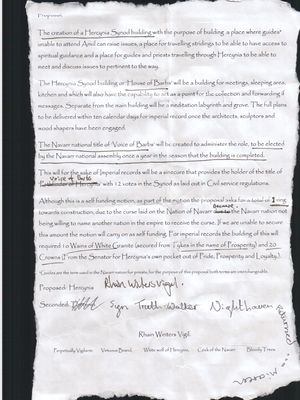 Proposal:
The creation of a Hercynia Synod building with the purpose of building a place where guides*
unable to attend Anvil can raise issues, a place for travelling stridings to be able to have access to
spiritual guidance and a place for guides and priests travelling through Hercynia to be able to
meet and discuss issues to pertinent to the way.
The Hercynia Synod building or 'House of Barbs' will be a building for meetings, sleeping area,
kitchen and which will also have the capability to act as a point for the collection and forwarding if
messages. Separate from the main building will be a meditation labyrinth and grove. The full plans
to be delivered within ten calendar days for imperial record once the architects, sculptors and
wood shapers have been engaged.
The Navarr national title of 'Voice of Barbs' will be created to administer the role, to be elected
by the Navarr national assembly once a year in the season that the building is completed.
This will for the sake of Imperial records will be a sinecure that provides the holder of the title of
Voice of Barbs
of Hercynia' with 12 votes in the Synod as laid out in Civil service regulations.
Although this is a self funding motion, as part of the motion the proposal asks for a total of 1 ring
towards construction, due to the curse laid on the Nation of Navarr because the Navarr nation
not being willing to name another nation in the empire to receive the curse. If we are unable to secure
this amount the motion will carry on as self funding. For imperial records the building of this will
required 10 Wains of White Granite (secured from Tykes in the name of Prosperity) and 20
Crowns (From the Senator for Hercynia's own pocket out of Pride, Prosperity and Loyalty).
Guides are the term used in the Navarr nation for priests, for the purpose of this proposal both terms are interchangeable.
Proposed: Hercynia Rhian Waters Vigil.
Seconded: Sign Truth-Walker Nighthaven
returned ... miaren
Rhian Waters Vigil
Perpetually Vigilant Virtuous Brand, White wolf of Hercynia, Cynk of the Navarr Bloody Titan